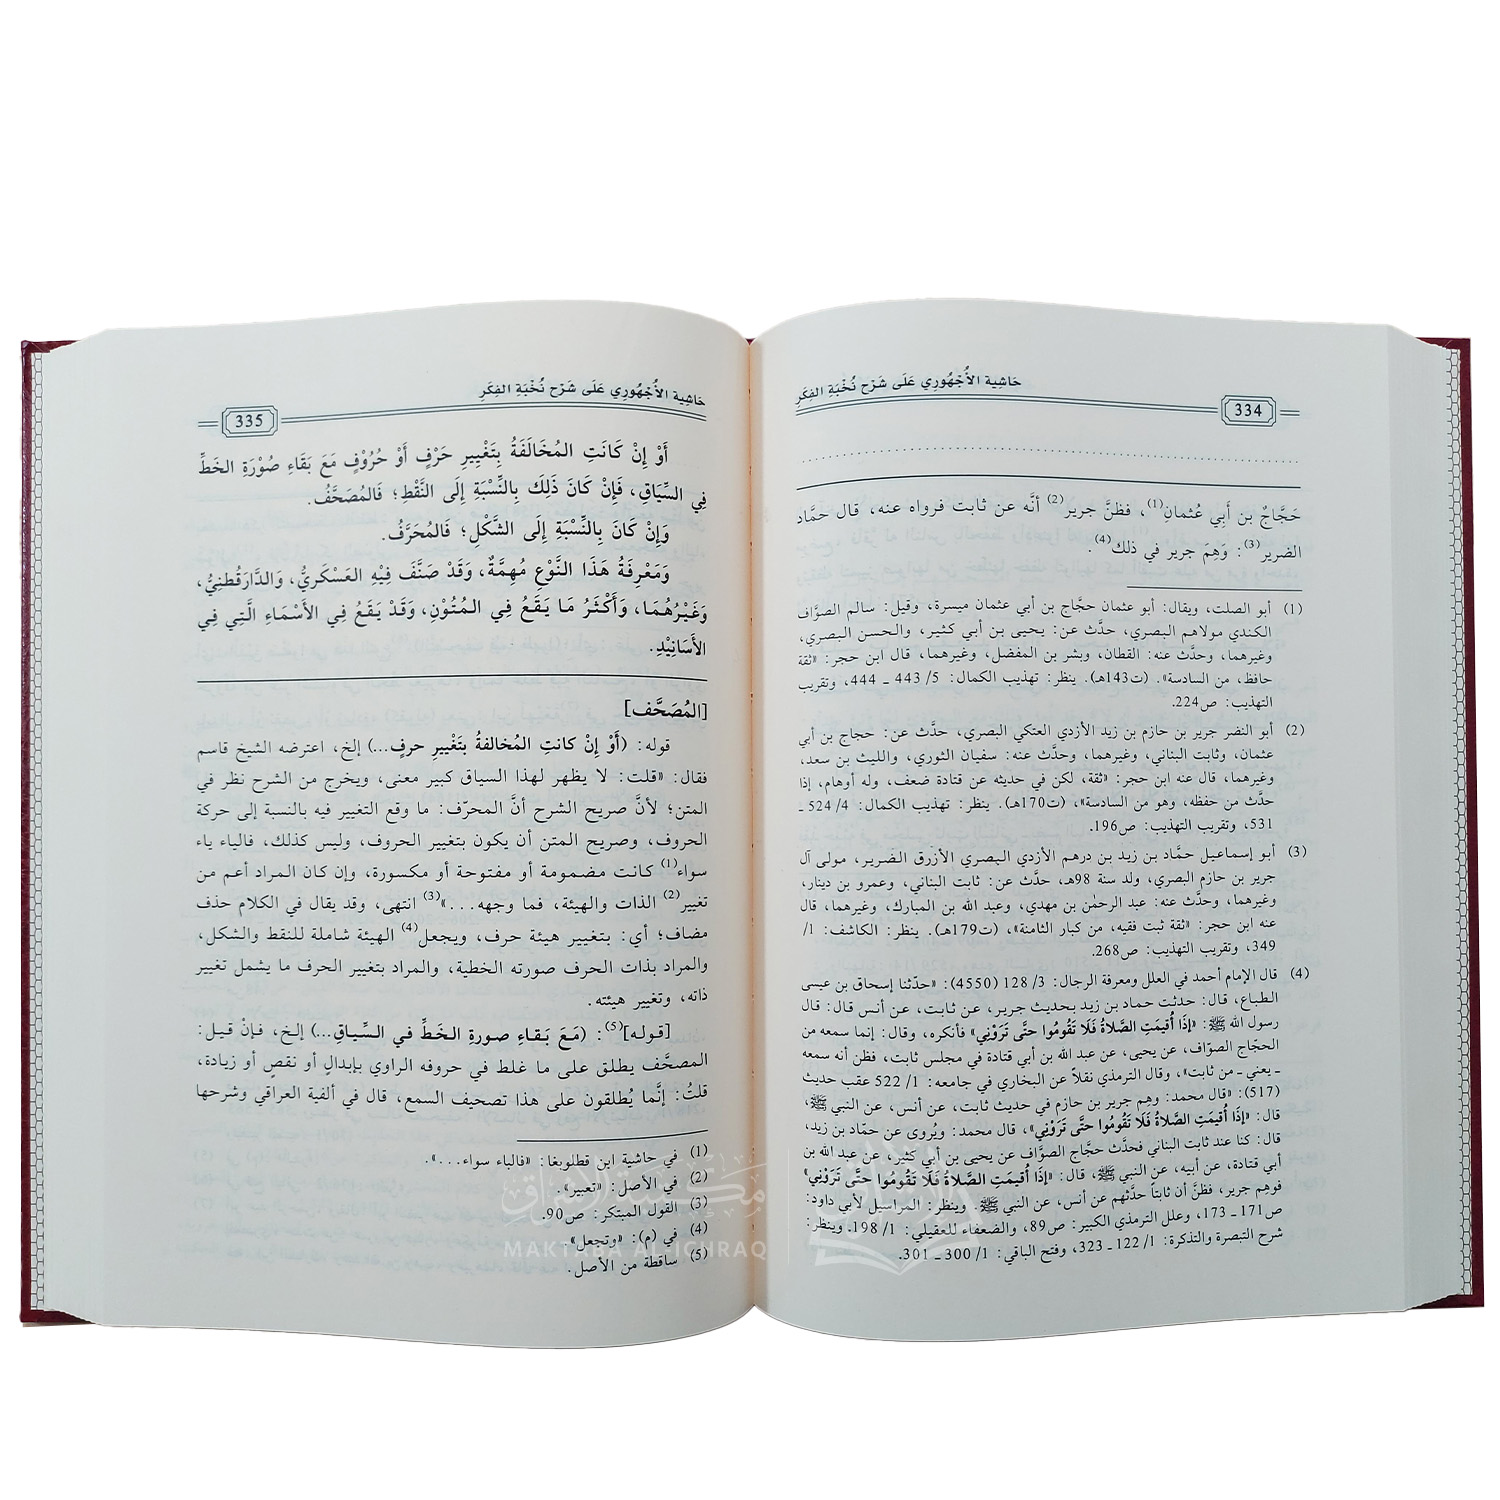 حَاشِية الأُجْهُورِي عَلَى شَرْح نُخْبَةِ الفِكَر
334
حَجَّاجٌ بن أَبي عُثمانِ(1)، فظنَّ جرير(2) أنَّه عن ثابت فرواه عنه، قال حمَّاد
الضرير(3): وَهِمَ جرير في ذلك(4).
(1) أبو الصلت، ويقال: أبو عثمان حجَّاج بن أبي عثمان ميسرة، وقيل: سالم الصوَّاف
الكندي مولاهم البصري، حدَّث عن: يحيى بن أبي كثير، والحسن البصري،
وغيرهما، وحدَّث عنه: القطان، وبشر بن المفضل، وغيرهما، قال ابن حجر: «ثقة
حافظ، من السادسة». (ت143هـ). ينظر: تهذيب الكمال: 5/ 443 ـ 444، وتقريب
التهذيب: ص224.
(2) أبو النضر جرير بن حازم بن زيد الأزدي العتكي البصري، حدَّث عن: حجاج بن أبي
عثمان، وثابت البناني، وغيرهما، وحدَّث عنه: سفيان الثوري، والليث بن سعد،
وغيرهما، قال عنه ابن حجر: «ثقة، لكن في حديثه عن قتادة ضعف، وله أوهام، إذا
حدَّث من حفظه، وهو من السادسة»، (ت170هـ). ينظر: تهذيب الكمال: 4/ 524 ـ
531، وتقريب التهذيب: ص196.
(3) أبو إسماعيل حمَّاد بن زيد بن درهم الأزدي البصري الأزرق الضرير، مولى آل
جرير بن حازم البصري، ولد سنة 98هـ، حدَّث عن: ثابت البناني، وعمرو بن دينار،
وغيرهما، وحدَّث عنه: عبد الرحمٰن بن مهدي، وعبد الله بن المبارك، وغيرهما، قال
عنه ابن حجر: «ثقة ثبت فقيه، من كبار الثامنة»، (ت179هـ). ينظر: الكاشف: 1/
349، وتقريب التهذيب: ص268.
(4) قال الإمام أحمد في العلل ومعرفة الرجال: 3/ 128 (4550): «حدّثنا إسحاق بن عيسى
الطباع، قال: حدثت حماد بن زيد بحديث جرير، عن ثابت، عن أنس قال: قال
رسول الله ﷺ: «إذَا أُقِيمَتِ الصَّلاةُ فَلَا تَقُومُوا حتَّى تَرَوْنِي» فأنكره، وقال: إنما سمعه من
الحجّاج الصوّاف، عن يحيى، عن عبد الله بن أبي قتادة في مجلس ثابت، فظن أنه سمعه
ـ يعني ـ من ثابت»، وقال الترمذي نقلاً عن البخاري في جامعه: 1/ 522 عقب حديث
(517): «قال محمد: وهِم جرير بن حازم في حديث ثابت، عن أنس، عن النبي ﷺ،
قال: «إذَا أُقيمَتِ الصَّلاةُ فَلَا تَقُومُوا حتَّى تَرَوْنِي»، قال محمد: ويُروى عن حمّاد بن زيد،
قال: كنا عند ثابت البناني فحدّث حجّاج الصوَّاف عن يحيى بن أبي كثير، عن عبد الله بن
أبي قتادة، عن أبيه، عن النبي ﷺ، قال: «إذَا أُقيمَتِ الصَّلاةُ فَلَا تَقُومُوا حتَّى تَرَوْنِي»
فوهم جرير، فظنَّ أن ثابتاً حدَّثهم عن أنس، عن النبي ﷺ. وينظر: المراسيل لأبي داود:
ص171 ـ 173، وعلل الترمذي الكبير: ص89، والضعفاء للعقيلي: 1/ 198. وينظر:
شرح التبصرة والتذكرة: 1/ 122 ـ 323، وفتح الباقي: 1/ 300 ـ 301.
حَاشِية الأُجْهُورِي عَلَى شَرْح نُخْبَةِ الفِكَر
335
أَوْ إِنْ كَانَتِ المُخَالَفَةُ بِتَغْيِيرِ حَرْفٍ أَوْ حُرُوْفٍ مَعَ بَقَاءِ صُوْرَةِ الخَطِّ
فِي السِّيَاقِ، فَإِنْ كَانَ ذَلِكَ بِالنِّسْبَةِ إِلَى النَّقْطِ؛ فَالمُصَحَّفُ.
وَإِنْ كَانَ بِالنِّسْبَةِ إِلَى الشَّكْلِ؛ فَالمُحَرَّفُ.
وَمَعْرِفَةُ هَذَا النَّوْعِ مُهِمَّةٌ، وَقَدْ صَنَّفَ فِيْهِ العَسْكَريُّ، وَالدَّارَقُطنِيُّ،
وَغَيْرُهُمَا، وَأَكْثَرُ مَا يَقَعُ فِي المُتُوْنِ، وَقَدْ يَقَعُ فِي الأَسْمَاءِ الَّتِي فِي
الأَسَانِيْدِ.
[المُصَحَّف]
قوله: (أَوْ إِنْ كانتِ المُخالفةُ بتَغييرِ حرفٍ...) إلخ، اعترضه الشيخ قاسم
فقال: «قلت: لا يظهر لهذا السياق كبير معنى، ويخرج من الشرح نظر في
المتن؛ لأنَّ صريح الشرح أنَّ المحرّف: ما وقع التغيير فيه بالنسبة إلى حركة
الحروف، وصريح المتن أن يكون بتغيير الحروف، وليس كذلك، فالياء ياء
سواء(1) كانت مضمومة أو مفتوحة أو مكسورة، وإن كان المراد أعم من
تغيير(2) الذات والهيئة، فما وجهه...»(3) انتهى، وقد يقال في الكلام حذف
مضاف؛ أي: بتغيير هيئة حرف، ويجعل(4) الهيئة شاملة للنقط والشكل،
والمراد بذات الحرف صورته الخطية، والمراد بتغيير الحرف ما يشمل تغيير
ذاته، وتغيير هيئته.
[قوله](5): (مَعَ بَقاءِ صورةِ الخطِّ في السِّياقِ...) إلخ، فإنْ قيل:
المصحَّف يطلق على ما غلط في حروفه الراوي بإبدالٍ أو نقصٍ أو زيادة،
قلتُ: إنَّما يُطلقون على هذا تصحيف السمع، قال في ألفية العراقي وشرحها
(1) في حاشية ابن قطلوبغا: «فالباء سواء...».
(2) في الأصل: «تعبير».
(3) القول المبتكر: ص90.
(4) في (م): «وتجعل».
(5) ساقطة من الأصل.
مكتبة الإشراق
MAKTABA AL-ICHRAQ